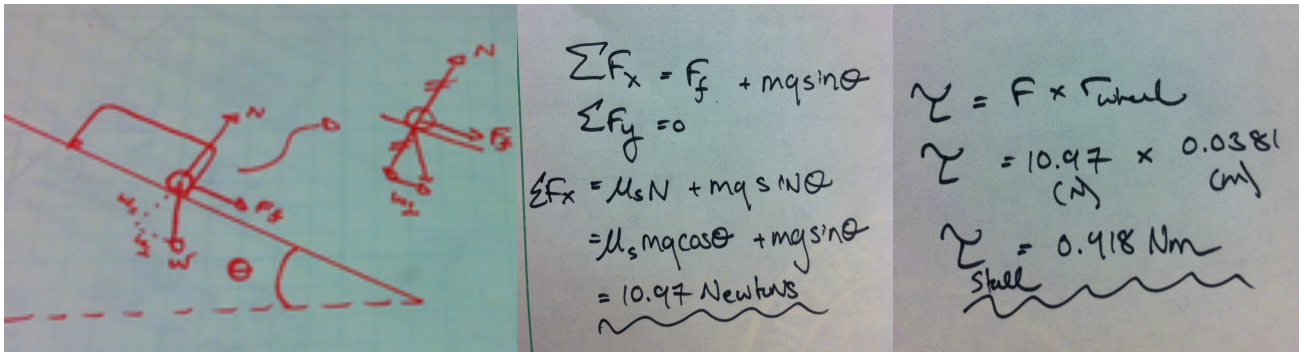 N
N
Ff
Ff
W
θ
ΣFx = Ff + mgsinθ
ΣFy = 0
ΣFx = μsN + mg sinθ
= μs mg cosθ + mg sinθ
= 10.97 Newtons
τ = F × rwheel
τ = 10.97 × 0.0381
(N) (m)
τstall = 0.418 Nm